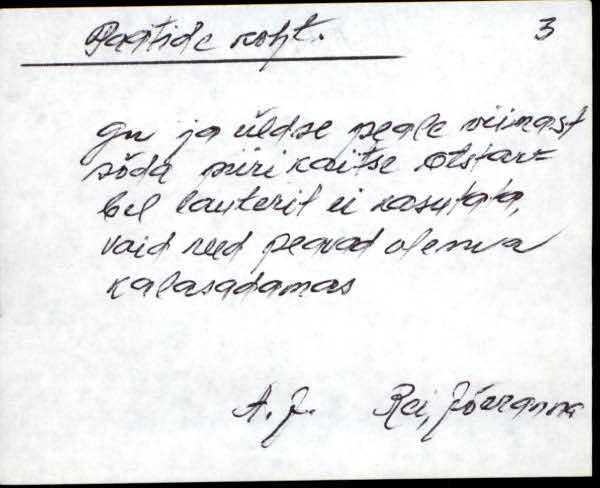 Paatide koht. 3
gu ja üldse peale viimast
sõda piirikaitse otstar=
bel lautrit ei kasutata,
vaid need peavad olema
kalasadamas
A. J. Rei, Jõeranna